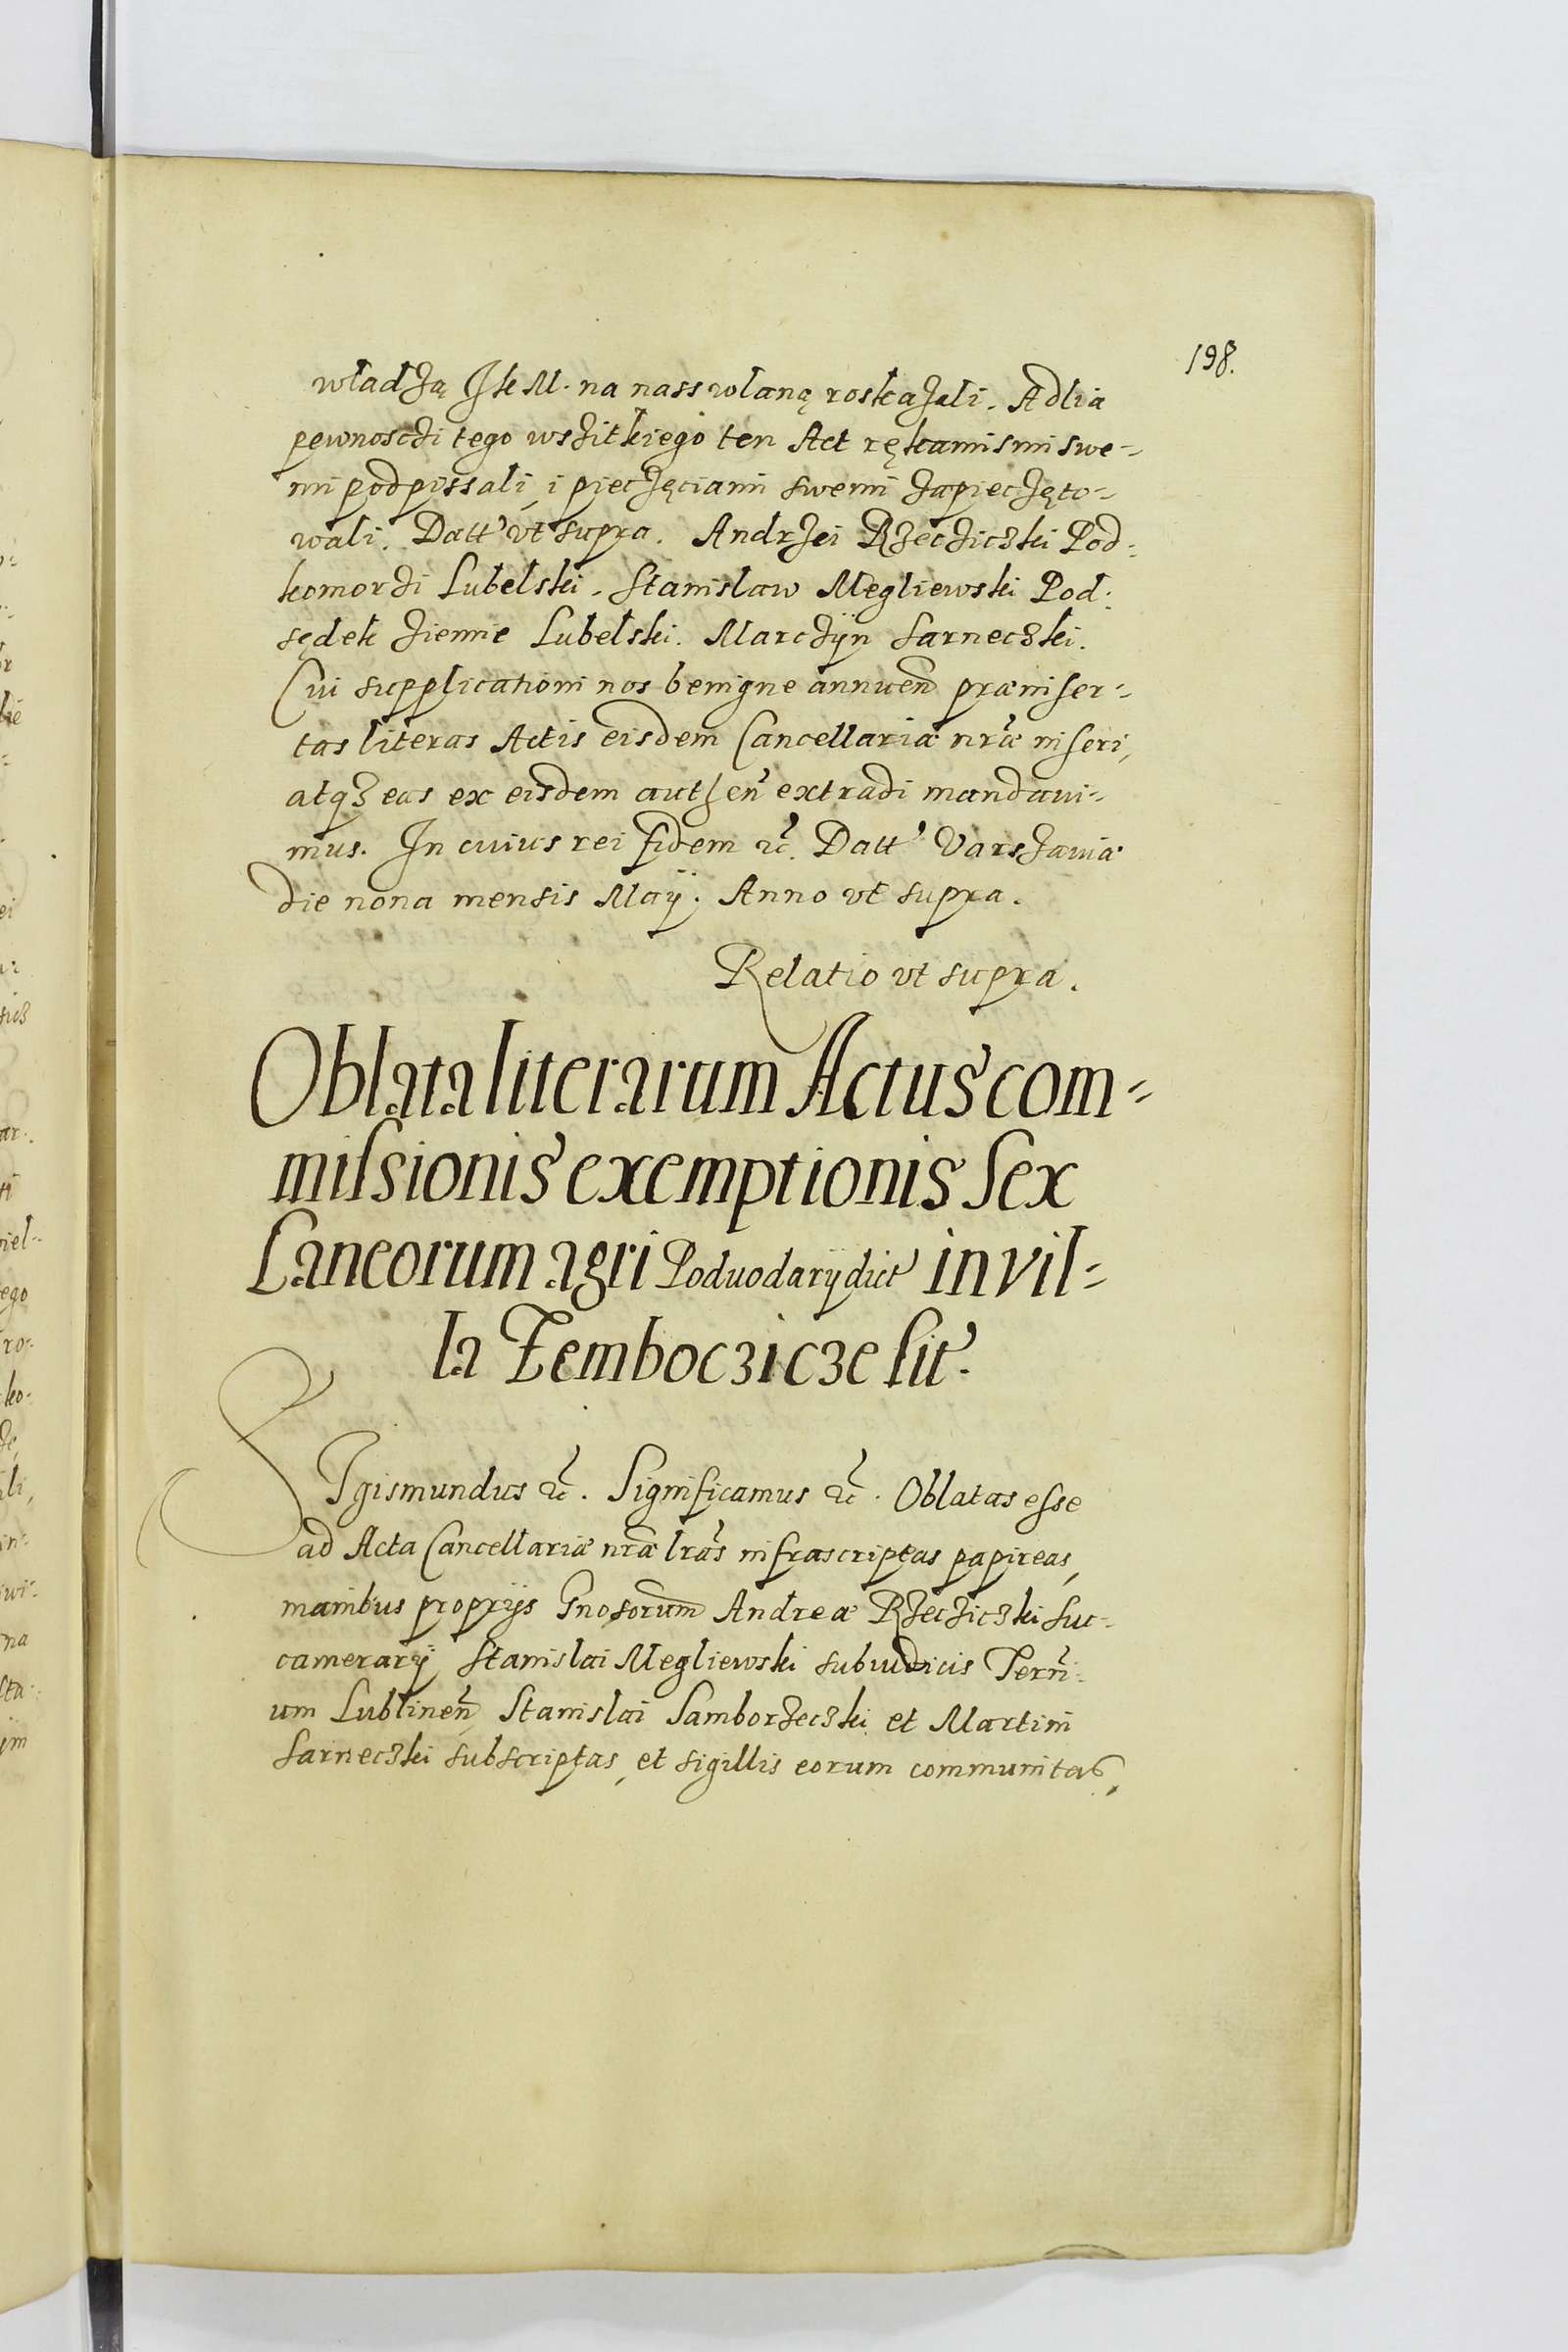 198.
władzą JKM. na nass wlaną roskazali. A dlia
pewnosczi tego wszitkiego ten Act rękamismi swe-
mi podpissali, i pieczęciami swemi zapieczęto-
wali. Datt ut supra. Andrzei Rzecziczki Pod:
komorzi Lubelski. Stanislaw Megliewski Pod:
sędek ziemie Lubelski. Marczÿn Sarneczki.
Cui supplicationi nos benigne annuen præinser-
tas literas Actis eisdem Cancellariæ nræ inseri,
atqз eas ex eisdem authen extradi mandavi-
mus. In cuius rei fidem &c. Datt Varszaviæ
die nona mensis Maÿ. Anno ut supra.
Relatio ut supra.
Oblata literarum Actus com-
missionis exemptionis sex
Laneorum agri Poduodarÿ dict in vil-
la Zemboczicze sit.
SIgismundus &c. Significamus &c. Oblatas esse
ad Acta Cancellariæ nræ lras infrascriptas papireas,
manibus proprijs Gnosorum Andreæ Rzecziczki suc-
camerarÿ Stanislai Megliewski subiudicis Terri-
um Lublinen, Stanislai Samborzeczki et Martini
Sarneczki subscriptas, et sigillis eorum communitas,